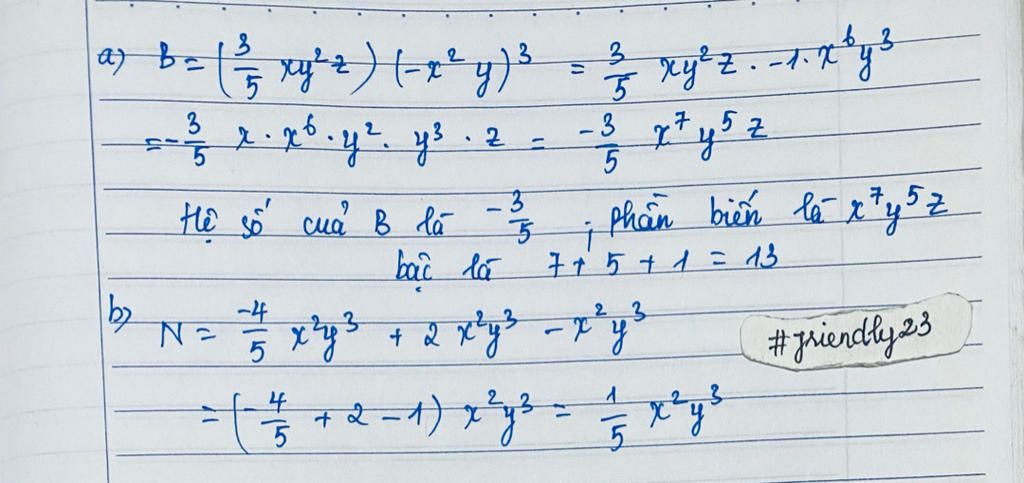 a) B = (3/5 xy²z) (-x²y)³ = 3/5 xy²z . -1 . x⁶y³
= -3/5 x . x⁶ . y² . y³ . z = -3/5 x⁷y⁵z
Hệ số cuả B là -3/5 ; phần biến là x⁷y⁵z
bậc là 7 + 5 + 1 = 13
b) N = -4/5 x²y³ + 2x²y³ - x²y³
#friendly23
= (-4/5 + 2 - 1) x²y³ = 1/5 x²y³